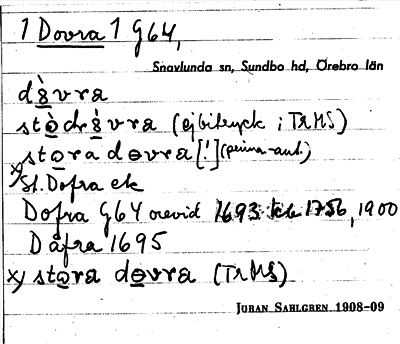 1 Dovra 1 G64,
Snavlunda sn, Sundbo hd, Örebro län
dè̱vra
stò̱drè̱vra (ej bitryck i TRMS)
sto̱ra do̱vra [!] (prima-ant.)
x) St. Dofra ek
Dofra G64 orevid 1693 1756, 1900
Dåfra 1695
x) sto̱ra do̱vra (TRMS)
JÖRAN SAHLGREN 1908-09